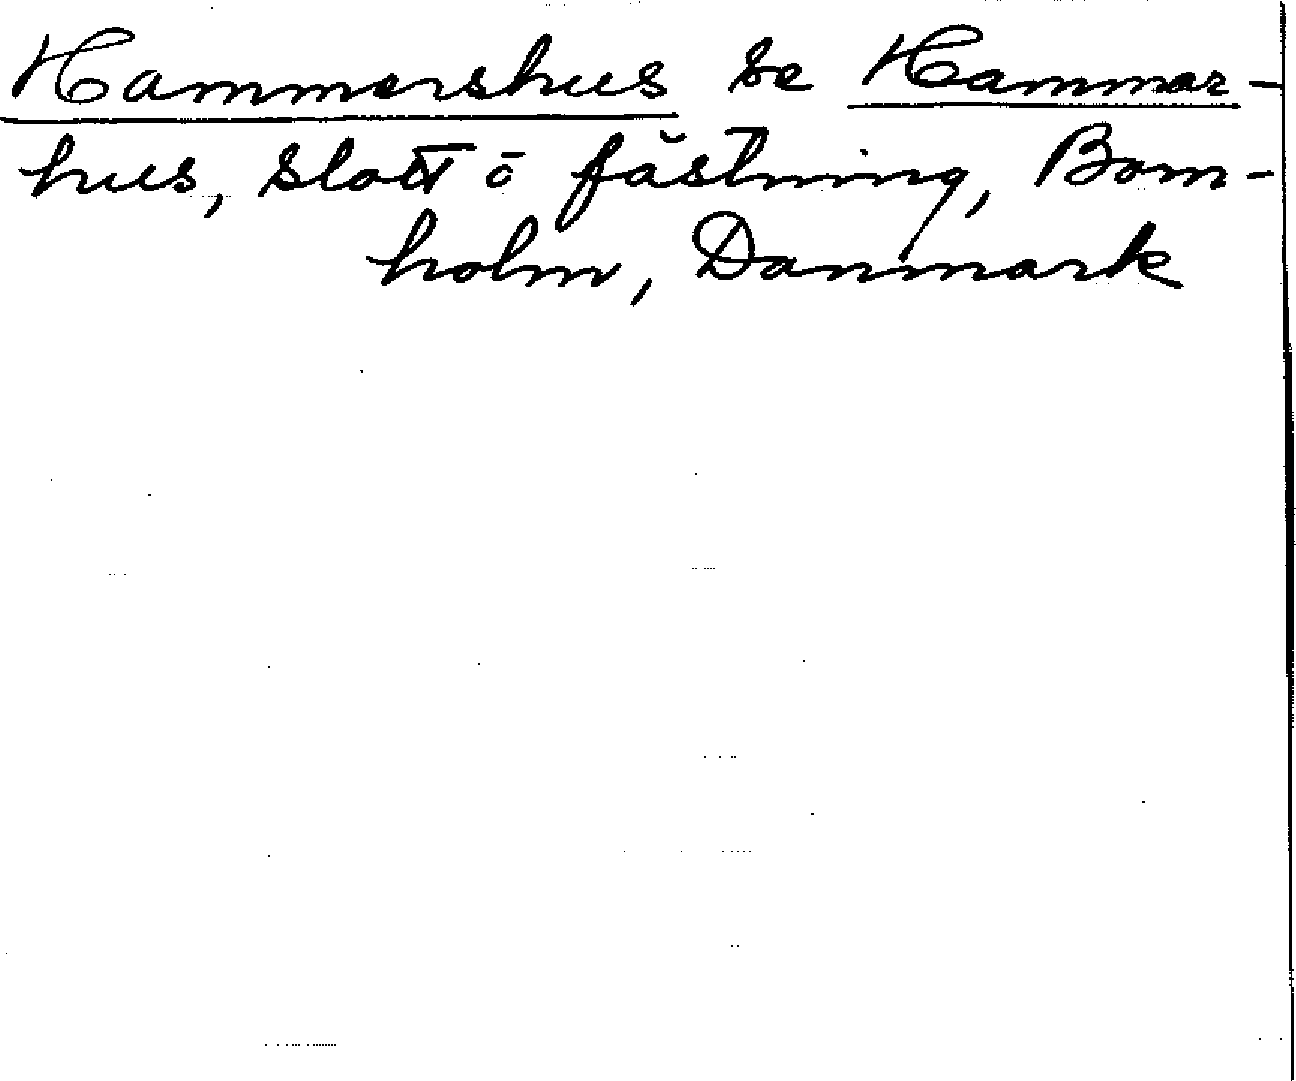 Hammershus se Hammar-
hus, slott ō fästning, Born-
holm, Danmark